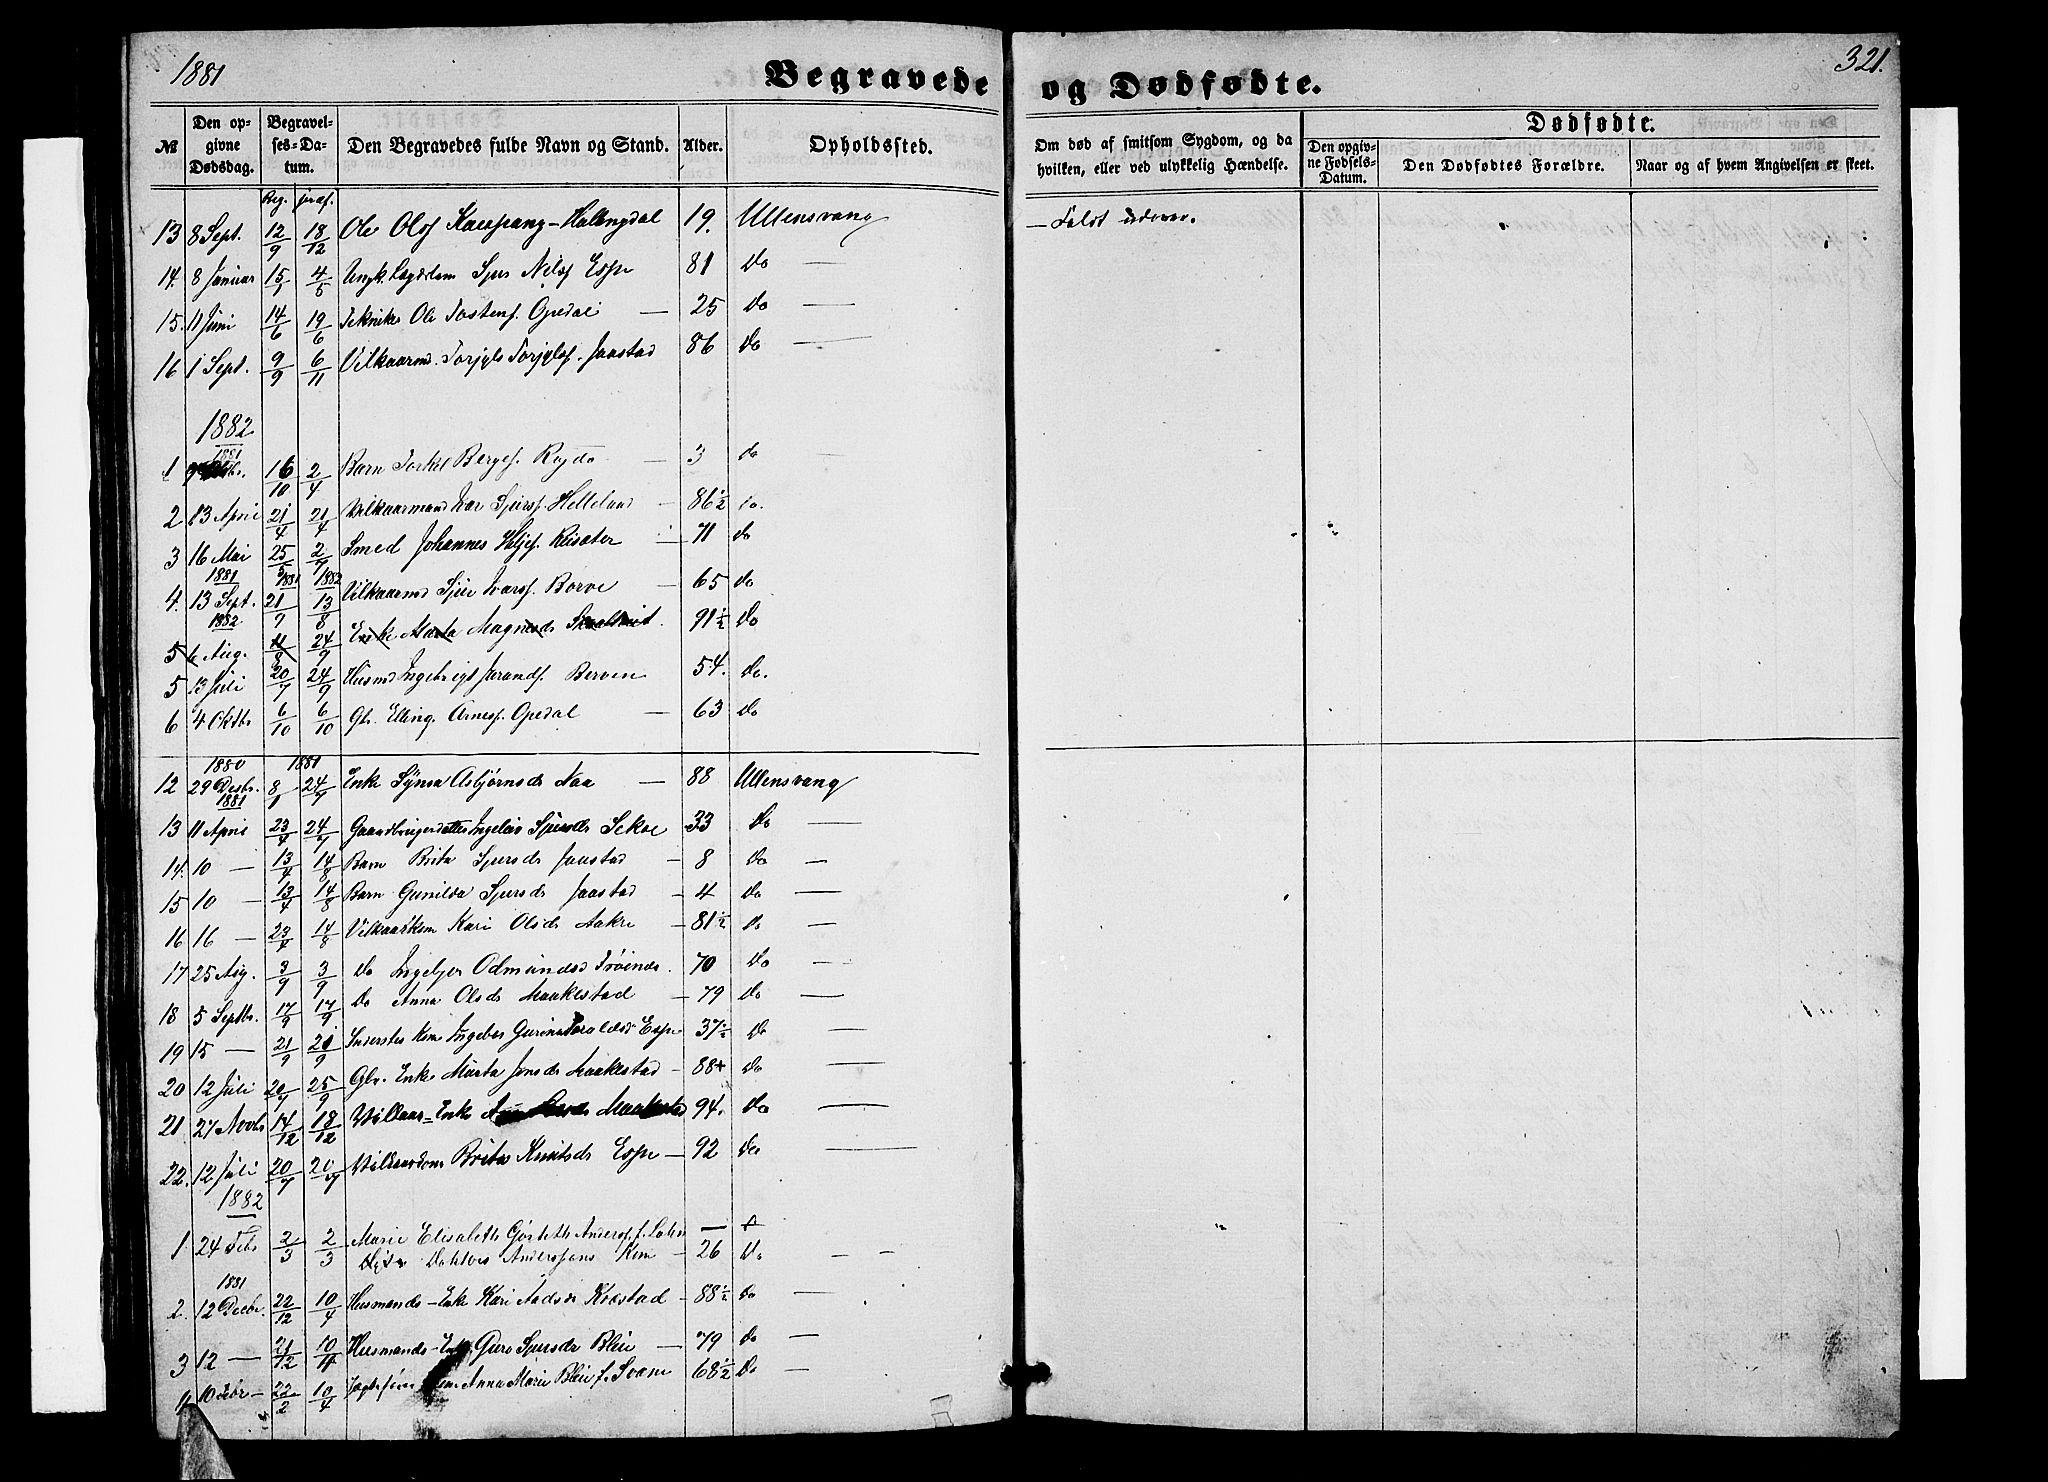 1881 Begravede og Dødfødte. 321.
№ Den opgivne Dødsdag. Begravelses-Datum. Den Begravedes fulde Navn og Stand. Alder. Opholdssted. Om død af smitsom Sygdom, og da hvilken, eller ved ulykkelig Hændelse. Dødfødte. Den opgivne Fødsels-Datum. Den Dødfødtes Forældre. Naar og af hvem Angivelsen er skeet.
Beg. præf.
13 8 Sept. 12/9 18/12 Ole Olsf Kaupang - Hallingdal 19. Ullensvang — Faldt udover.
14. 8 Januar 15/1 4/5 Sjur Nilsf Espe 81 Do —
15. 11 Juni 14/6 19/6 Tekniker Ole Tostenf. Opedal — 25 Do —
16 1 Sept. 9/9 6/11 Vilkaarmd. Torjyls Torjylsf. Jaastad 86 Do —
1882
1881
1 16/10 2/4 Barn Torkel Bergesf. — 3 do
2 13 April 21/4 21/4 Vilkaarmand Ivar Sjursf. Helleland — 86½ do.
3 16 Mai 25/5 2/7 Smed Johannes Heljesf. Reisæter — 71 do
1881 1881 1882
4. 13 Sept. 21/7 13/8 Vilkaarmd Sjur Ivarsf. Borve — 65 do
1882
5 6 Aug. 11/8 24/9 Enke Marta Magnesd. 91½ Do
5 13 Juli 20/7 24/9 Husmd Ingebrigt Jørandf. Berven 54. Do.
6 4 Oktbr 6/10 6/10 Gbr. Elling Arnesf. Opedal — 63 Do
1880 1881
12 29 Desbr. 8/1 24/7 Enke Synva Asbjørnsdr Naa — 88 Ullensvang
1881
13 11 April 23/4 24/7 Gaardbrugerdatter Ingeleiv Sjursdtr Sekse 33 Do —
14. 10 — 13/4 14/8 Barn Brita Sjursdr Jaastad — 8 Do —
15 10 — 13/4 14/8 Barn Gunilda Sjursdr Jaastad — 4 Do —
16 16 — 23/4 14/8 Vilkaarskone Kari Olsdr Aakre — 81½ Do —
17 25 Aug. 3/9 3/9 Do Ingebjør Odmundsd 70 Do —
18 5 Septbr. 17/9 17/9 Do Anna Olsdr Maakestad — 79 Do —
19 15 — 21/9 21/9 Inderstes Kone Ingebor Gurine Haraldsdr Espe 37½ Do —
20 12 Juli 20/7 25/9 Gbr. Enke Marta Jonsdr Maakestad — 88 Do —
21 27 Novbr 14/12 18/12 Vilkaar-Enke Maakestad 94. Do —
22. 12 Juli 20/7 20/7 Vilkaarskone Brita Knutsdr Espe — 92 Do —
1882
1. 24 Febr 2/3 2/3 Marie Elisabeth Andersf. f. —
Anderssons Kone — 26 Do — —
1881
2. 12 Decbr. 22/12 10/4 Husmands-Enke Kari Aadsdr Kvæstad — 88½ Do —
3 12 — 21/12 10/4 Husmands-Enke Guro Sjursdr Bleie — 79 Do —
4 10 Febr — 22/2 10/4 Anna Marie Bleie f. Svane 68½ Do —